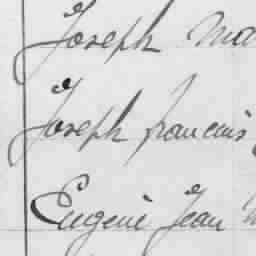 Joseph Ma
Joseph francois
Eugene Jean